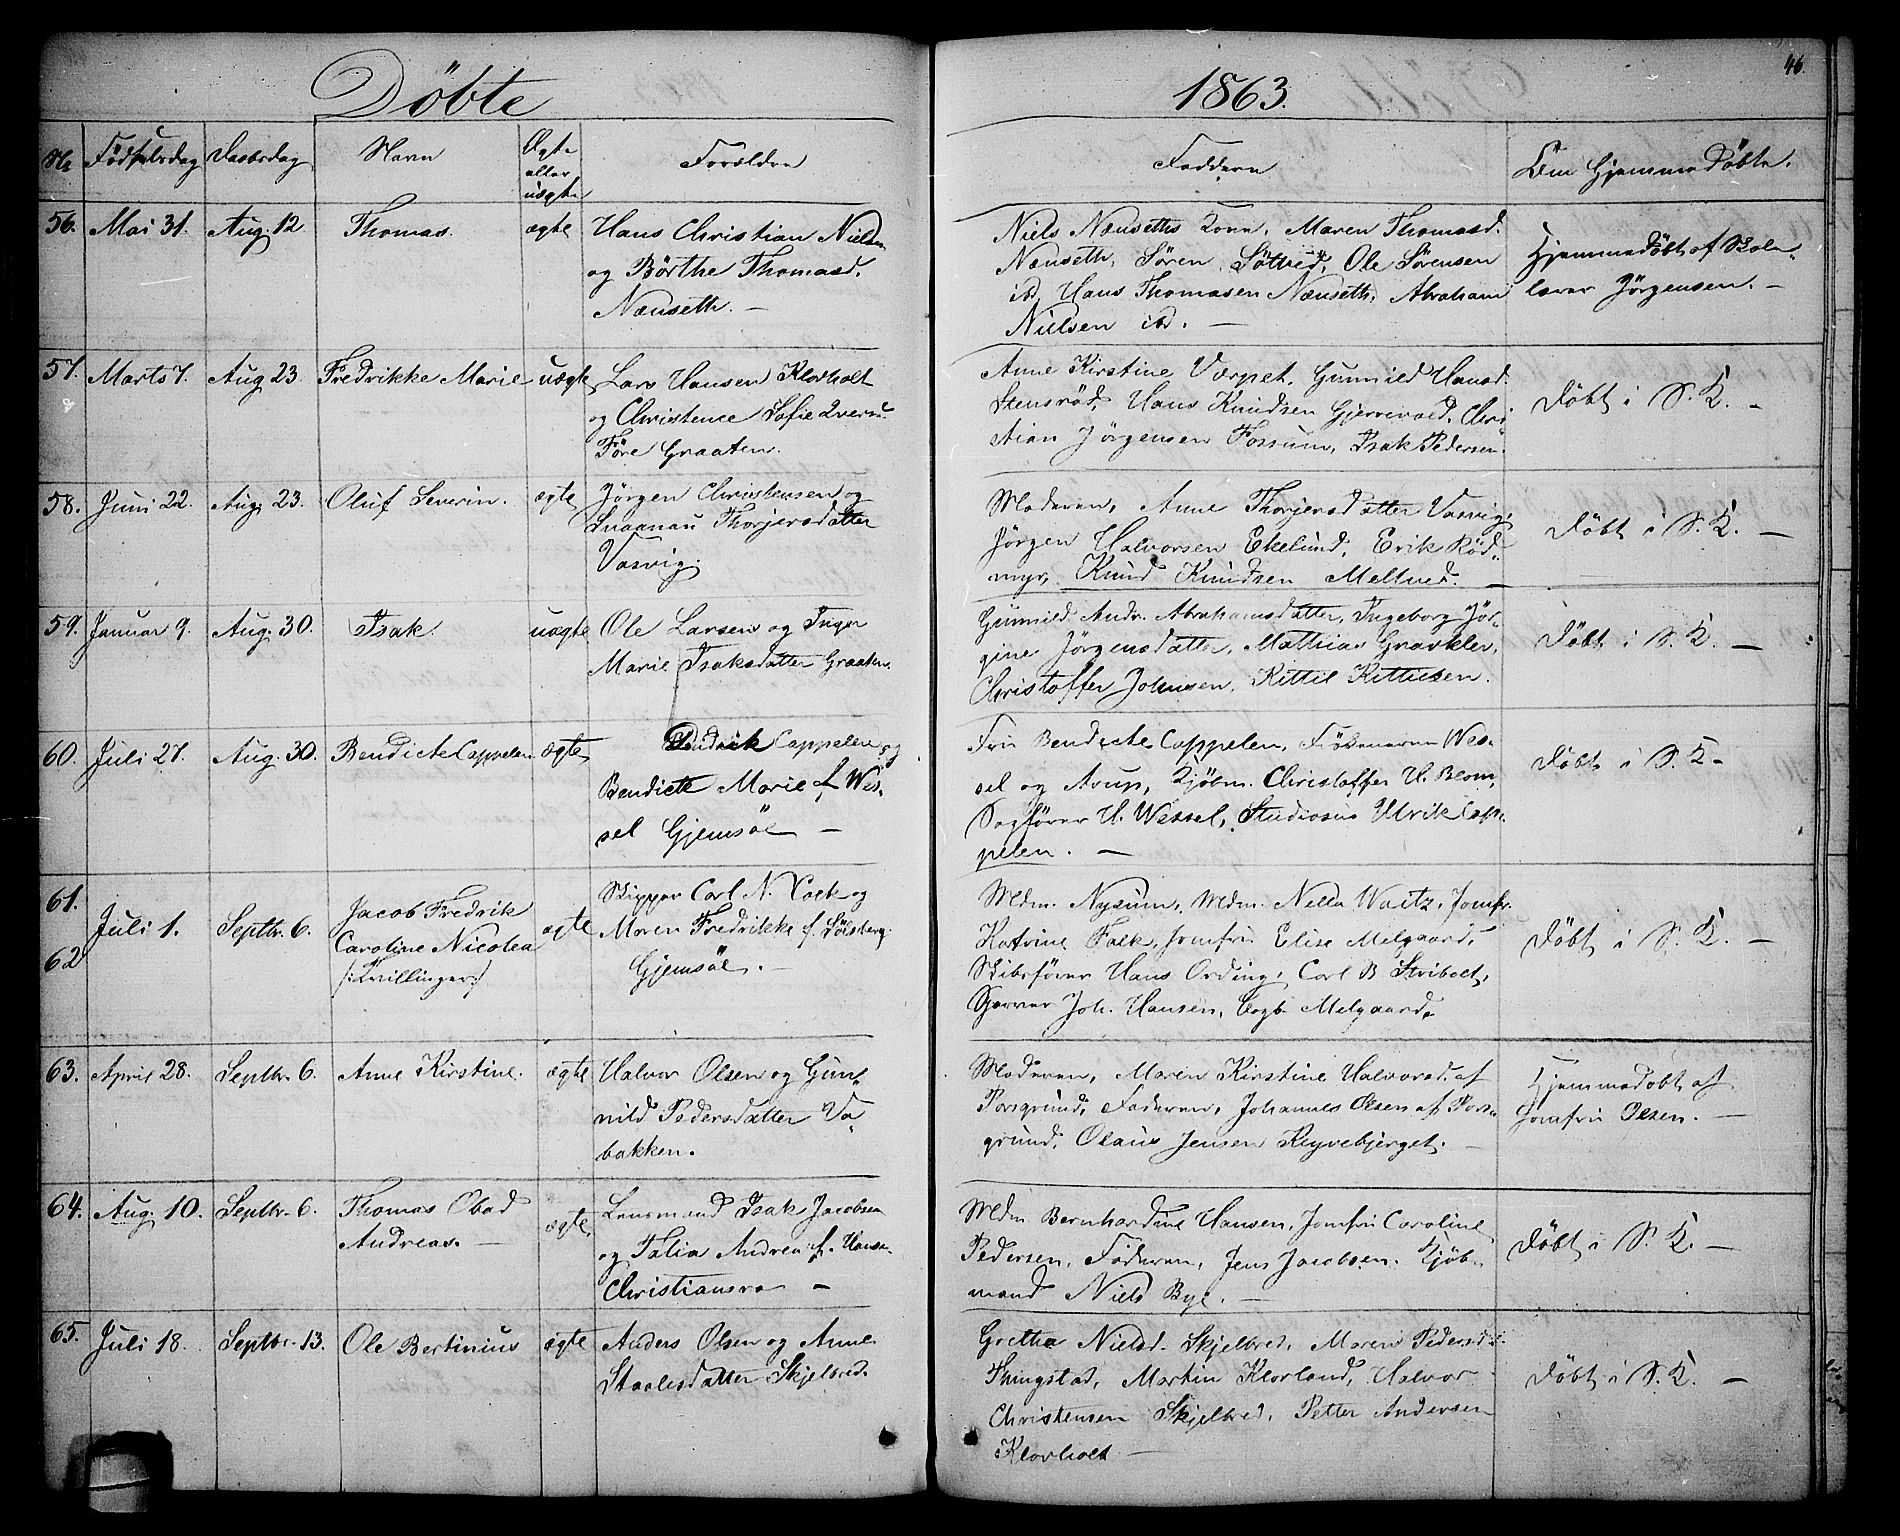 Döbte
1863.
46
Nr Födselsdag Daabsdag Navn Ægte eller uægte Forældre Faddere Om Hjemmedöbte.
56. Mai 31. Aug. 12 Thomas. ægte
Hans Christian Nielsen
og Börthe Thomasd.
Næuseth. —
Niels Næuseths Kone, Maren Thomasd.
Næuseth, Sören Ole Sörensen
ibd, Hans Thomasen Næuseth, Abraham
Nielsen ibd. —
Hjemmedöbt af Skole-
lærer Jörgensen. —
57. Marts 7. Aug 23. Fredrikke Marie uægte
Lars Hansen Klovholt
og Christence Sofie
Töre Graaten.
Anne Kirstine Værpet, Gunnild Hansd.
Stensröd, Hans Knudsen Gjerrevold, Chri-
stian Jörgensen Fossum, Isak Pedersen.
Döbt i S. K. —
58. Juni 22. Aug. 23. Oluf Severin. ægte
Jörgen Christensen og
Thorjersdatter
Vasvig.
Moderen, Anne Thorjersdatter Vasvig,
Jörgen Halvorsen Ekelund, Erik Röd-
myr, Knud Knudsen Meltved. —
Döbt i S. K. —
59. Januar 9. Aug. 30. Isak. uægte
Ole Larsen og Inger
Marie Isaksdatter Graaten.
Gunnild Andr. Abrahamsdatter, Ingeborg Jör-
gine Jörgensdatter, Mathias Gravklev,
Christoffer Johnsen, Kittil Kittilsen.
Döbt i S. K. —
60. Juli 27. Aug. 30. Bendicte Cappelen ægte
Didrik Cappelen og
Bendicte Marie f. Wes-
sel Gjemsöe —
Fru Bendicte Cappelen, Frökenerne Wes-
sel og Arup, Kjöbm. Christoffer H. Blom,
Sagförer H. Wessel, Studiosus Ulrik Cap-
pelen. —
Döbt i S. K —
61.
62
Juli 1. Septbr. 6.
Jacob Fredrik
Caroline Nicolea
/: Tvillinger :/
ægte
Skipper Carl N. Falck og
Maren Fredrikke f. Solberg
Gjemsöe. —
Mdm. Nysum, Mdm. Nella Waitz, Jomfr.
Katrine Falk, Jomfru Elise Melgaard,
Skibsförer Hans Ording, Carl B Stribolt,
Garver Joh. Hansen, Melgaard.
Döbt i S. K. —
63. April 28. Septbr. 6. Anne Kirstine. ægte
Halvor Olsen og Gun-
nild Pedersdatter Va-
bakken.
Moderen, Maren Kirstine Halvorsd. af
Porsgrund, Faderen, Johannes Olsen af Pors-
grund, Olaus Jensen Klyvebjerget. —
Hjemmedöbt af
Jomfru Olsen. —
64. Aug. 10. Septbr. 6.
Thomas Obad
Andreas. —
ægte
Lensmand Isak Jacobsen
og Talia Andrea f. Hansen
Christiansro —
Mdm Bernhardine Hansen, Jomfru Caroline
Pedersen, Faderen, Jens Jacobsen. Kjöb-
mand Niels Bye. —
Döbt i S. K. —
65. Juli 18. Septbr. 13. Ole Bertinius ægte
Anders Olsen og Anne
Staalesdatter Skjelbred.
Grethe Nielsd. Skjelbred, Maren Pedersd.
Thingstad, Martin Klovland, Halvor
Christensen Skjelbred, Petter Andersen
Klovholt —
Döbt i S. K. —